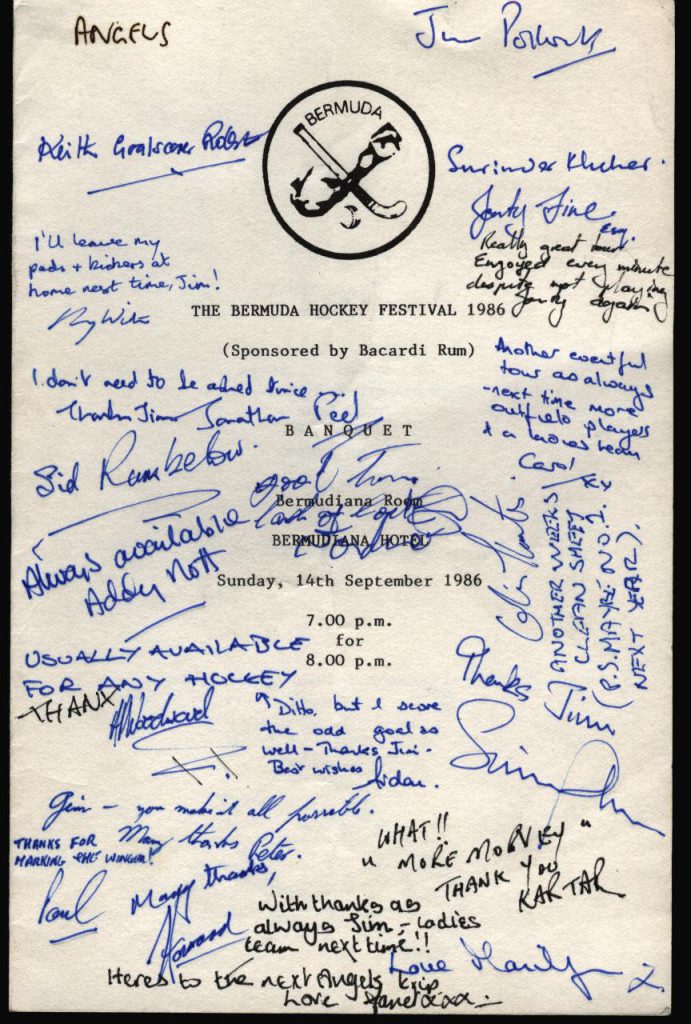 ANGELS
Jim
BERMUDA
Keith Goalscorer
Surinder
I'll leave my
pads + kickers at
home next time, Jim!
Really great tour
Enjoyed every minute
despite not playing
again
THE BERMUDA HOCKEY FESTIVAL 1986
(Sponsored by Bacardi Rum)
Another eventful
tour as always
- next time more
outfield players
& a ladies team
Carol
I don't need to be asked twice
Thanks Jim Jonathan
BANQUET
Sid Rumbelow.
Bermudiana Room
BERMUDIANA HOTEL
Always available
Addy Nott
Sunday, 14th September 1986
7.00 p.m.
for
8.00 p.m.
Colin
ANOTHER WEEKS
CLEAN SHEET
(P.S. MAYBE NO.1
NEXT YEAR).
USUALLY AVAILABLE
FOR ANY HOCKEY
THANX
AWoodward
Thanks
Jim
Ditto, but I score
the odd goal as
well - Thanks Jim.
Best wishes
Aidan.
Jim - you make it all possible.
Many thanks Peter.
THANKS FOR
MARKING THE WINGER!
Paul
Many thanks,
WHAT!!
"MORE MORVEY"
THANK YOU
KARTAR
With thanks as
always Jim, - Ladies
team next time!!
Love
Heres to the next Angels trip
Love Janet xxx